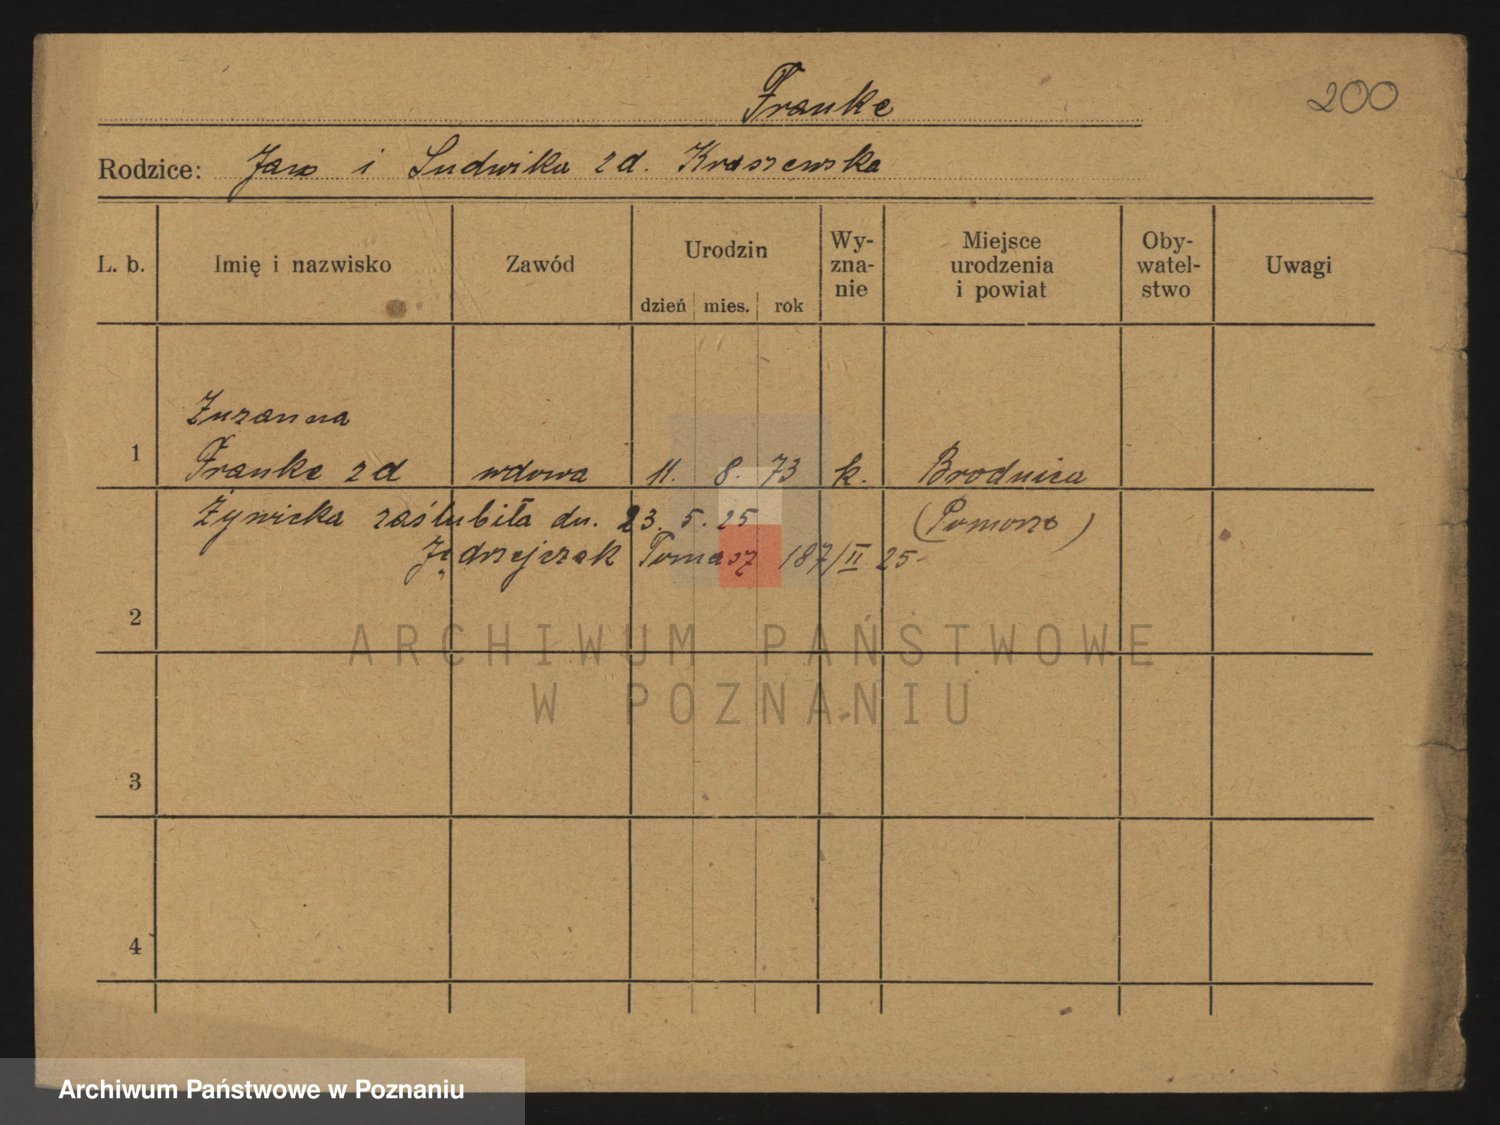 Franke
200
Rodzice: Jan i Ludwika zd. Kraszewska
L. b. Imię i nazwisko Zawód Urodzin dzień mies. rok Wy-zna-nie Miejsce urodzenia i powiat Oby-watel-stwo Uwagi
Zuzanna
1 Franke zd wdowa 11. 8. 73 k. Brodnica
Żywicka zaślubiła dn. 23. 5. 25 (Pomorze)
Jędrzejczak Tomasz 187/II 25-
2
ARCHIWUM PAŃSTWOWE
W POZNANIU
3
4
Archiwum Państwowe w Poznaniu